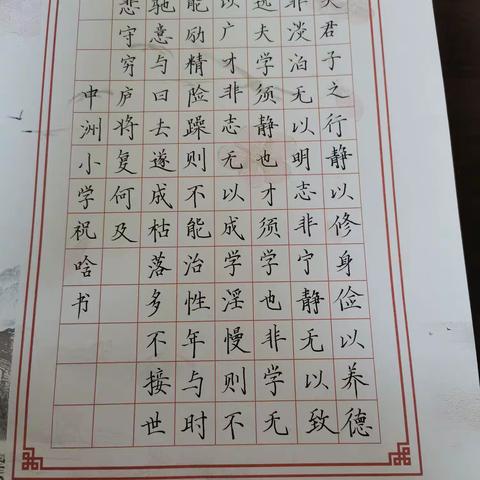 夫君子之行静以修身俭以养德
非淡泊无以明志非宁静无以致
远夫学须静也才须学也非学无
以广才非志无以成学淫慢则不
能励精险躁则不能治性年与时
驰意与日去遂成枯落多不接世
悲守穷庐将复何及
中洲小学祝晗书